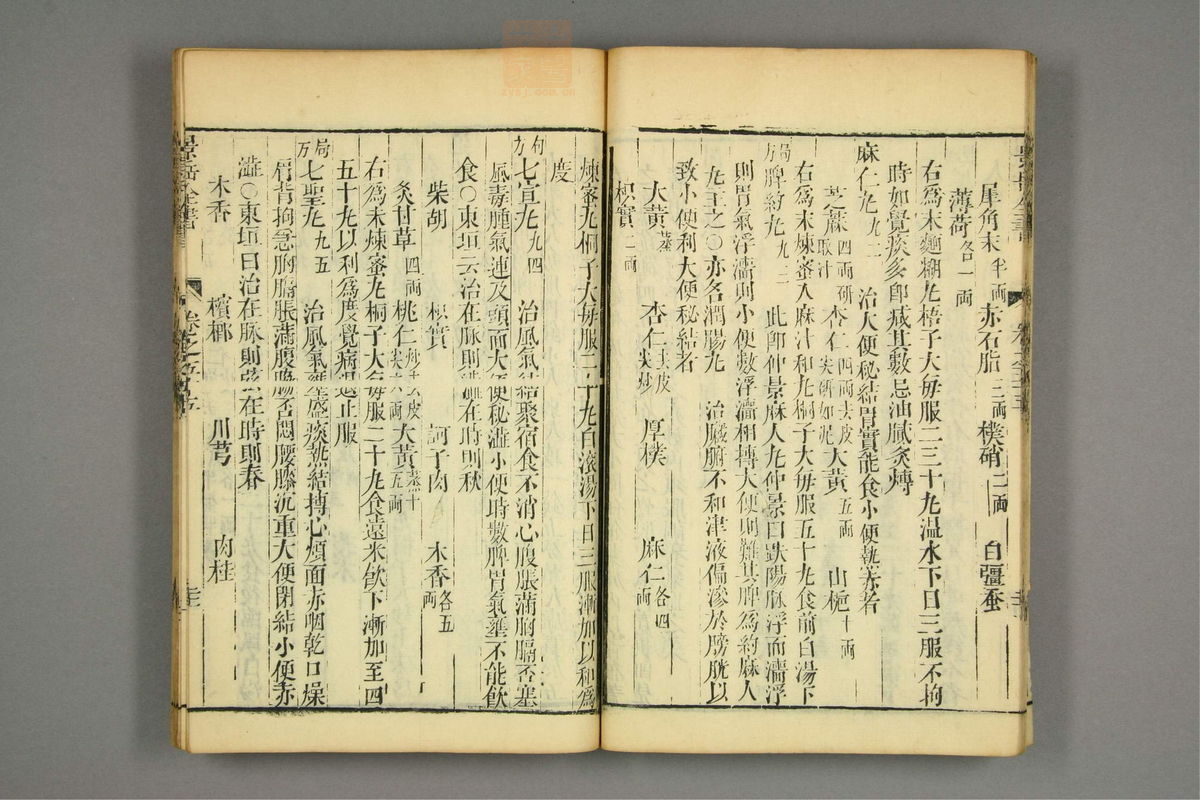 犀角末半兩 赤石脂三兩 樸硝二兩 白彊蚕
薄荷各一兩
右為末麵糊丸梧子大每服二三十丸温水下日三服不拘
時如覺痰多卽減其數忌油膩炙煿
麻仁丸九二 治大便秘結胃實能食小便熱赤者
芝蔴四兩研取汁 杏仁四兩去皮尖研如泥 大黄五兩 山梔十兩
右為末煉蜜入麻汁和丸桐子大每服五十丸食前白湯下
局方脾約丸九三 此卽仲景麻人丸仲景曰趺陽脉浮而濇浮
則胃氣浮濇則小便數浮濇相摶大便則難其脾為約麻人
丸主之○亦名潤腸丸 治臟腑不和津液偏滲於膀胱以
致小便利大便秘結者
大黄蒸 杏仁去皮尖炒 厚樸 麻仁各四兩
枳實二兩
煉蜜丸桐子大每服二三十丸白滚湯下日三服漸加以和為
度
局方七宣丸九四 治風氣結聚宿食不消心腹脹滿胸膈否塞
風毒腫氣連及頭面大便秘澁小便時數脾胃氣壅不能飲
食○東垣云治在脉則澁在時則秋
柴胡 枳實 訶子肉 木香各五兩
炙甘草四兩 桃仁炒去皮尖六兩 大黄蒸十五兩
右為末煉蜜丸桐子大每服二十丸食遠米飲下漸加至四
五十丸以利為度覺病退止服
局方七聖丸九五 治風氣壅盛痰熱結摶心煩面赤咽乾口燥
肩背拘急胸膈脹滿腹脇否悶腰膝沉重大便閉結小便赤
澁○東垣曰治在脉則弦在時則春
木香 檳榔 川芎 肉桂
景岳全書
卷之五十五